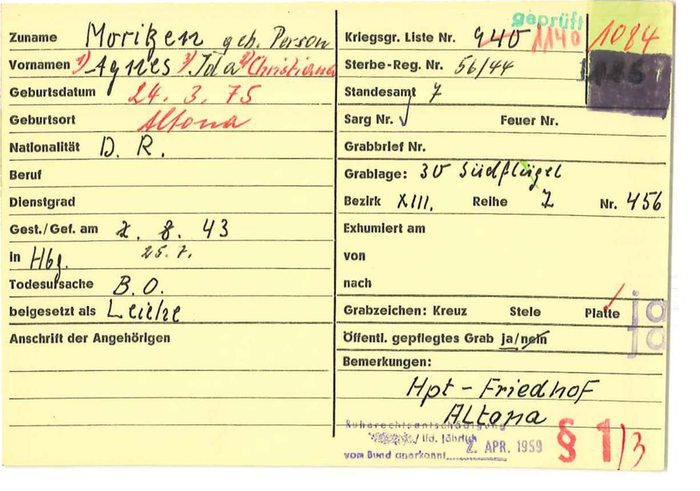 Zuname Moritzen geb. Person
Vornamen 1) Agnes 3) Ida 2) Christiana
Geburtsdatum 24. 3. 75
Geburtsort Altona
Nationalität D. R.
Beruf
Dienstgrad
Gest./Gef. am 2. 8. 43
25. 7.
in Hbg.
Todesursache B. O.
beigesetzt als Leiche
Anschrift der Angehörigen
geprüft
Kriegsgr. Liste Nr. 940 1140 1084
Sterbe-Reg. Nr. 56/44
Standesamt 7
Sarg Nr. Feuer Nr.
Grabbrief Nr.
Grablage: 30 Südflügel
Bezirk XIII. Reihe 7 Nr. 456
Exhumiert am
von
nach
Grabzeichen: Kreuz Stele Platte ja
Öffentl. gepflegtes Grab ja/nein ja
Bemerkungen:
Hpt-Friedhof
Altona
Ruherechtsentschädigung
/ lfd. jährlich
vom Bund anerkannt 2. APR. 1959
§ 1/3